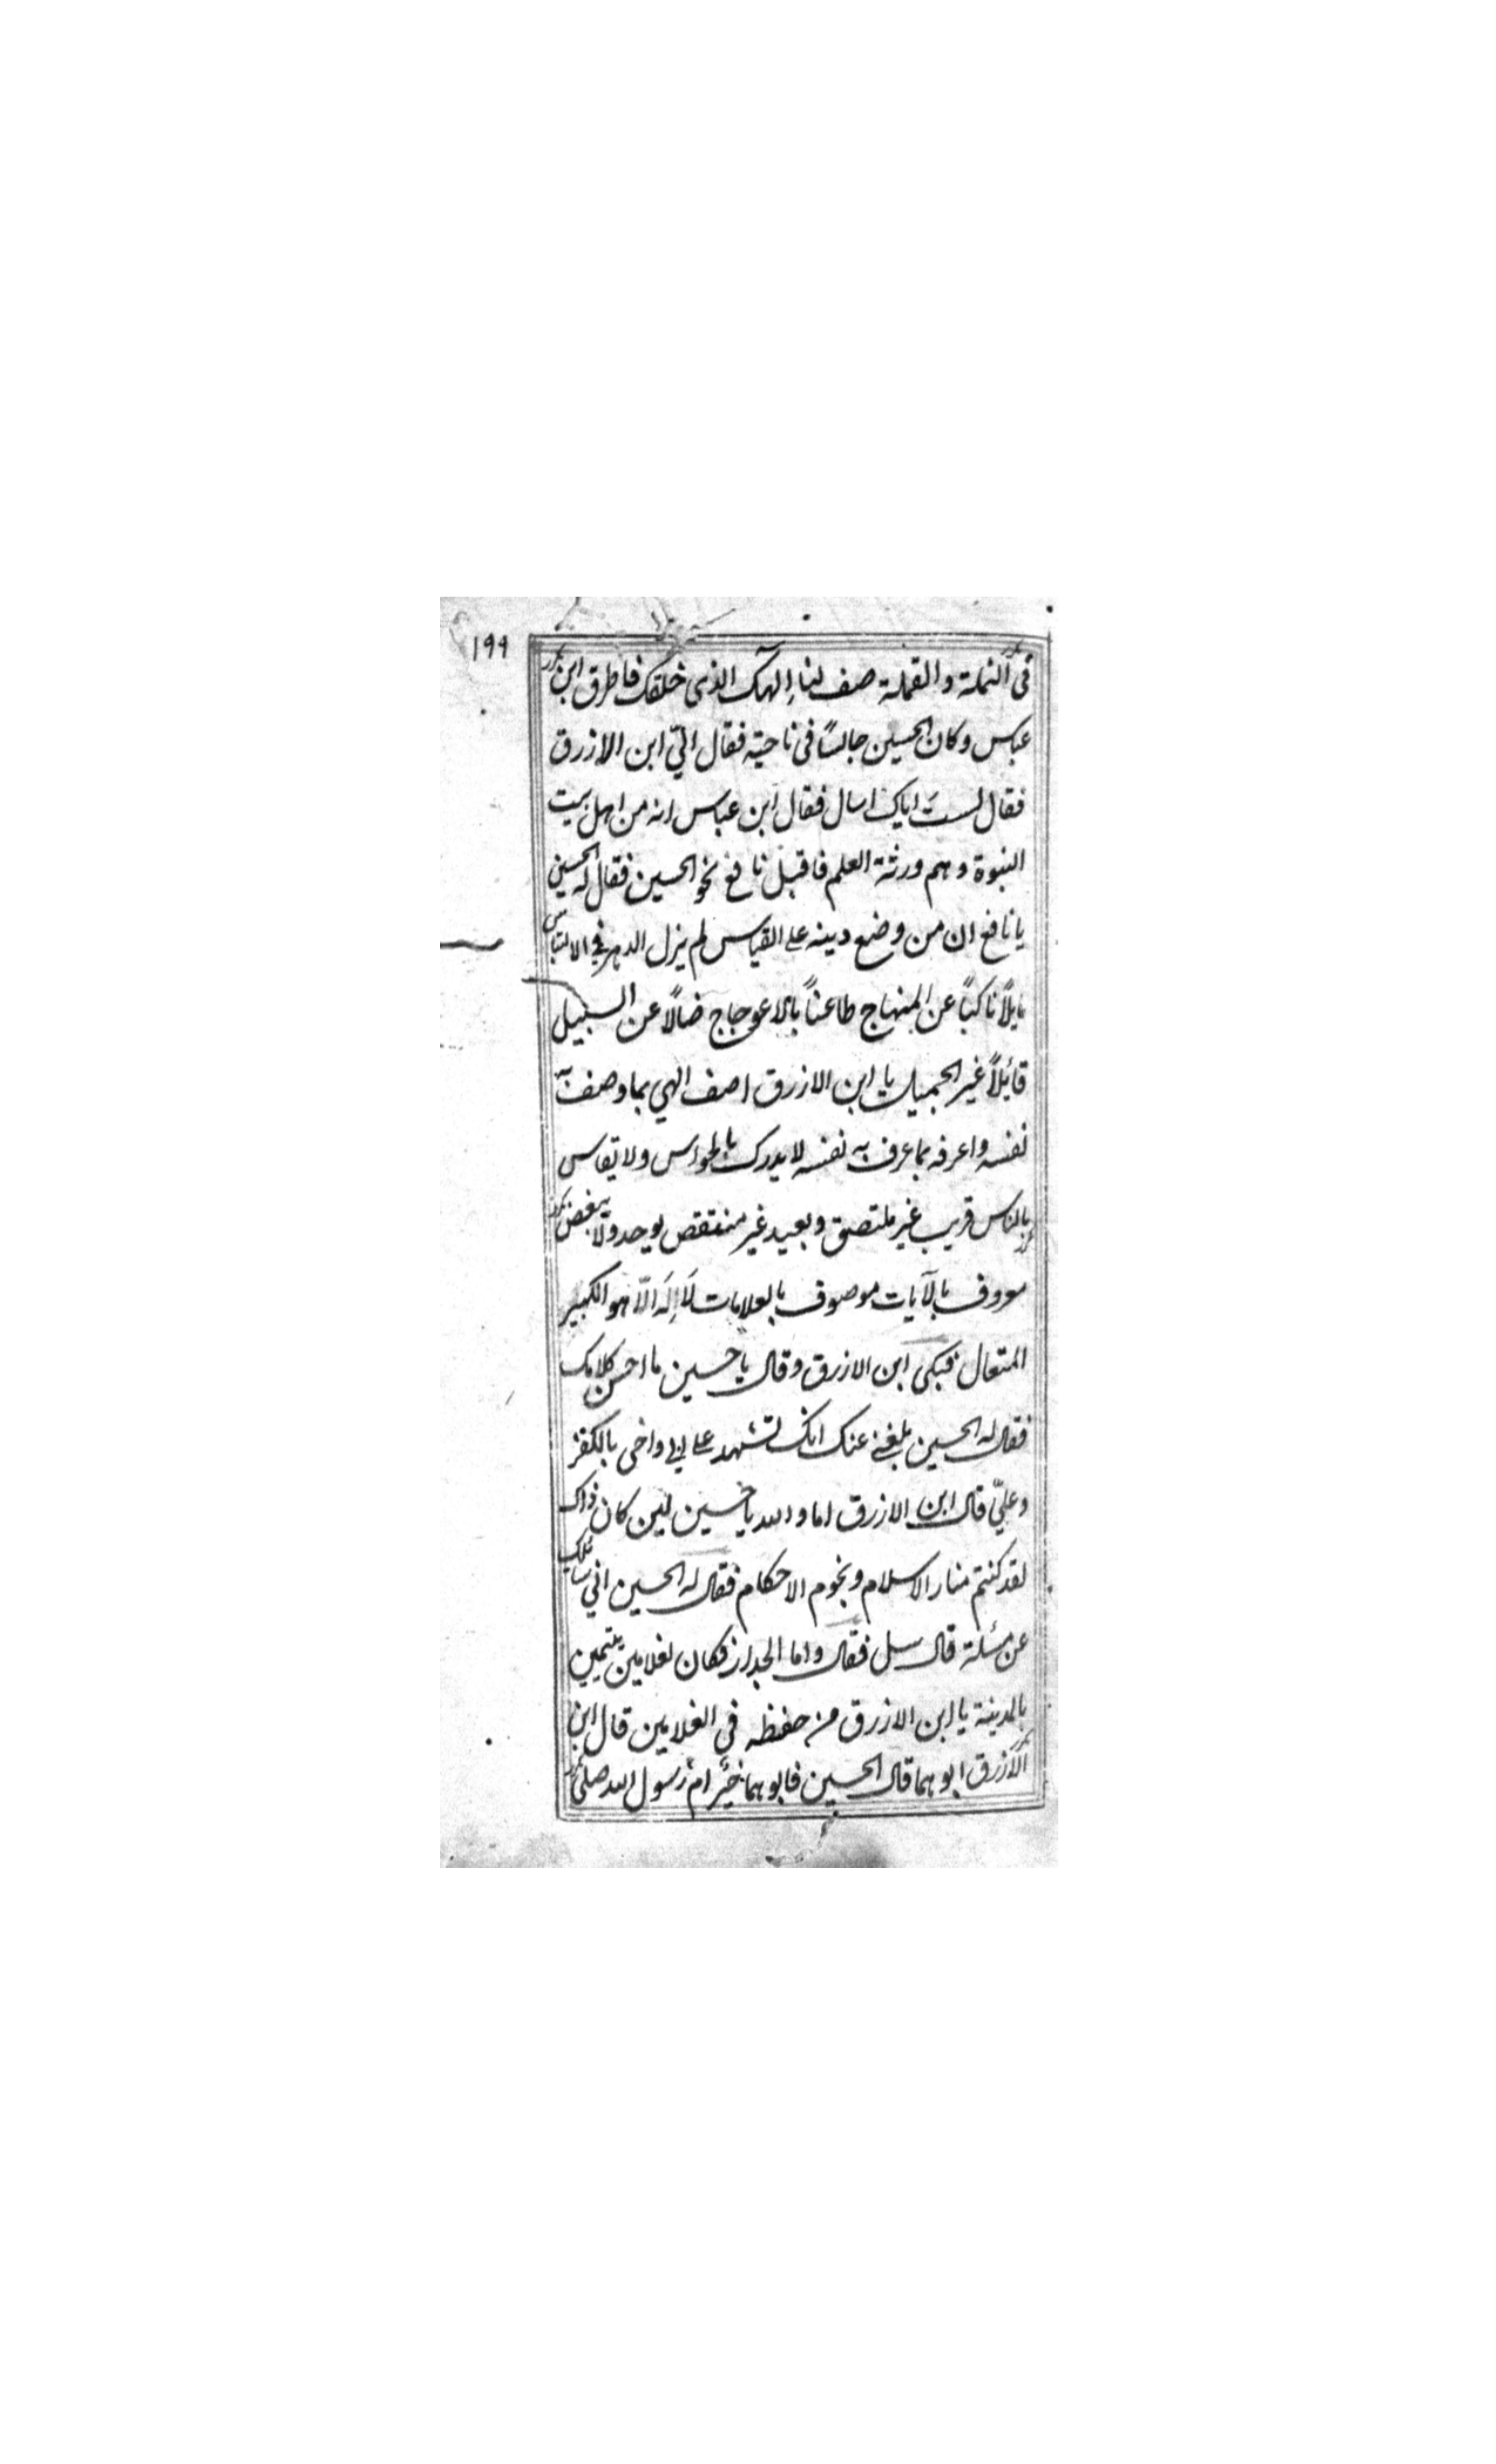 ١٩٩
في النملة والقملة صف لنا إلهك الذى خلقك فاطرق ابن
عباس وكان الحسين جالسًا فى ناحية فقال اليّ ابن الازرق
فقال لستَ اياك اسال فقال ابن عباس انه من اهل بيت
النبوة وهم ورثة العلم فاقبل نافع نحو الحسين فقال له الحسين
يا نافع ان من وضع دينه على القياس لم يزل الدهر في الالتباس
مايلًا ناكبًا عن المنهاج طاعنًا بالاعوجاج ضالًا عن السبيل
قائلًا غير الجميل يا ابن الازرق اصف الهي بما وصف به
نفسه واعرفه بما عرف به نفسه لا يدرك بالحواس ولا يقاس
بالناس قريب غير ملتصق وبعيد غير منتقص يوحد ولا يبغض
معروف بالآيات موصوف بالعلامات لَا إِلَهَ الّا هو الكبير
المتعال فبكى ابن الازرق وقال يا حسين ما احسن كلامك
فقال له الحسين بلغنے عنك انك تشهد على ابي واخى بالكفر
وعليّ قال ابن الازرق اما والله يا حسين لين كان ذاك
لقد كنتم منار الاسلام ونجوم الاحكام فقال له الحسين اني سايلك
عن مسئلة قال سل فقال واما الجدار فكان لغلامين يتيمين
بالمدينة يا ابن الازرق من حفظه في الغلامين قال ابن
الازرق ابوهما قال الحسين فابوهما خير ام رسول الله صلى